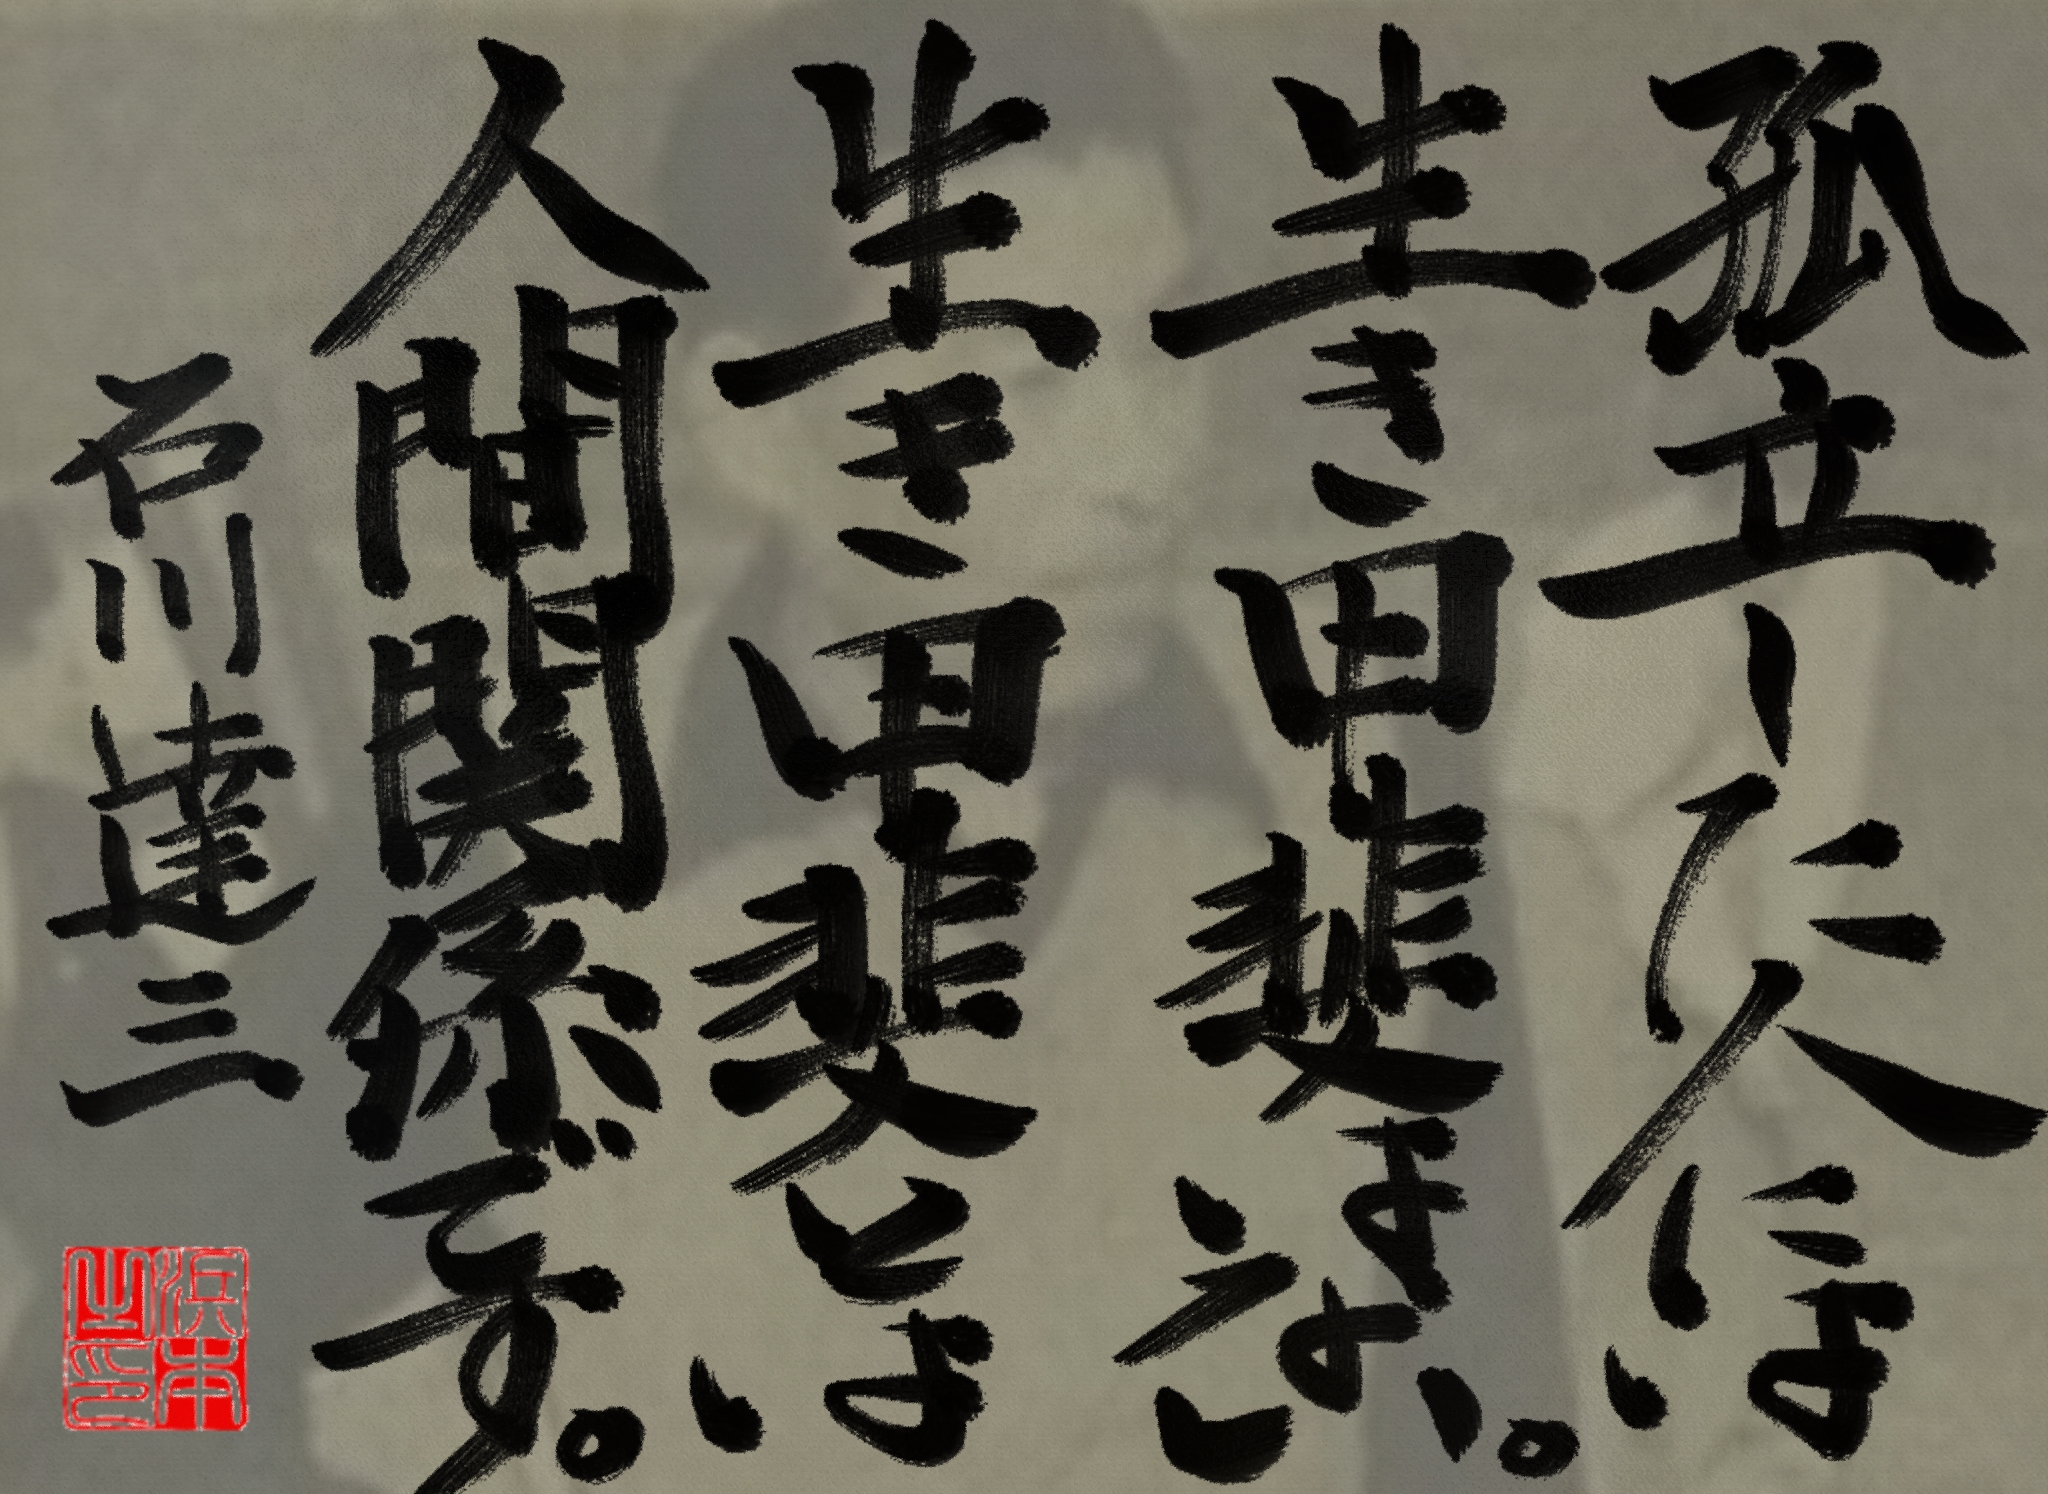 孤立した人には
生き甲斐はない。
生き甲斐とは
人間関係です。
石川達三
浜本之印